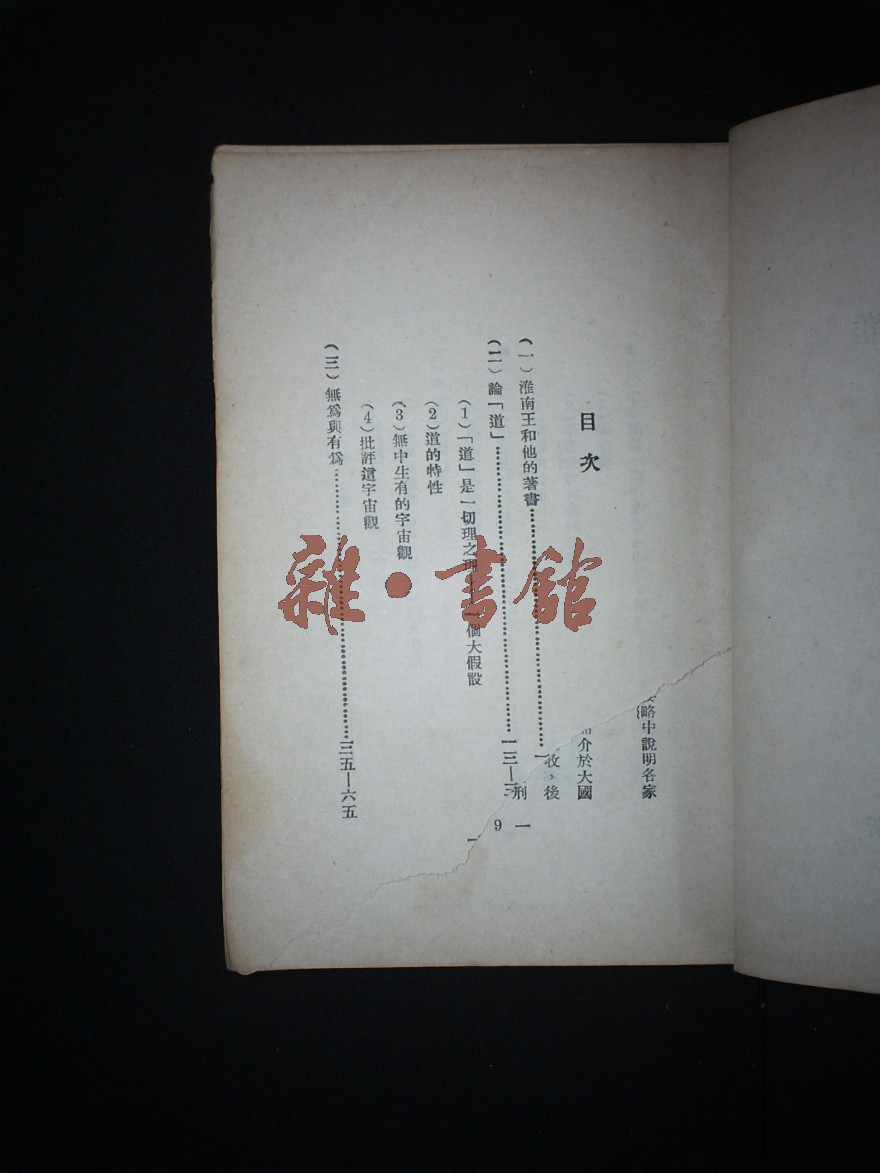 要略中說明各家
介於大國
目次
(一)淮南王和他的著書……一
收，後
(二)論「道」……一三—三
刑
(1)「道」是一切理之理——一個大假設
(2)道的特性
(3)無中生有的宇宙觀
(4)批評這宇宙觀
(三)無爲與有爲……三五—六五
9
一
雜·書館